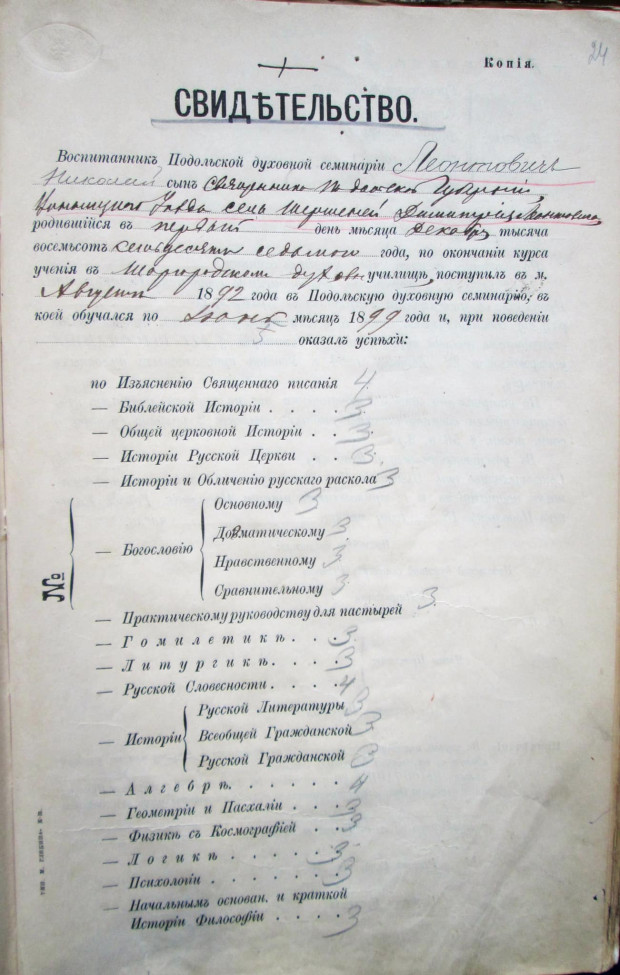 24
Копія.
СВИДѢТЕЛЬСТВО.
Воспитанникъ Подольской духовной семинаріи Леонтовичъ
Николай сынъ священника Подольской Губерніи,
Уѣзда села Шершней Димитрія Леонтовича,
родившійся въ первый день мѣсяца Декабря, тысяча
восемьсотъ семьдесятъ седьмого года, по окончаніи курса
ученія въ Шаргородскомъ духовн училищѣ, поступилъ въ м.
Августѣ 1892 года въ Подольскую духовную семинарію, въ
коей обучался по Іюнь мѣсяцъ 1899 года и, при поведеніи
5 оказалъ успѣхи:
по Изъясненію Священнаго писанія 4
— Библейской Исторіи . . . . 3
— Общей церковной Исторіи . . 3
— Исторіи Русской Церкви . 3
— Исторіи и Обличенію русскаго раскола 3
№
— Богословію
Основному 3
Догматическому 3
Нравственному 3
Сравнительному 3
— Практическому руководству для пастырей 3
— Гомилетикѣ . . . 3
— Литургикѣ . . . 3
— Русской Словесности . . . . 4
— Исторіи
Русской Литературы 3
Всеобщей Гражданской 3
Русской Гражданской 3
— Алгебрѣ . . . . . . 4
— Геометріи и Пасхаліи . . . 3
— Физикѣ съ Космографіей . . 3
— Логикѣ . . . . . . 3
— Психологіи . . . . . . 3
— Начальнымъ основан. и краткой
Исторіи Философіи . . . . 3